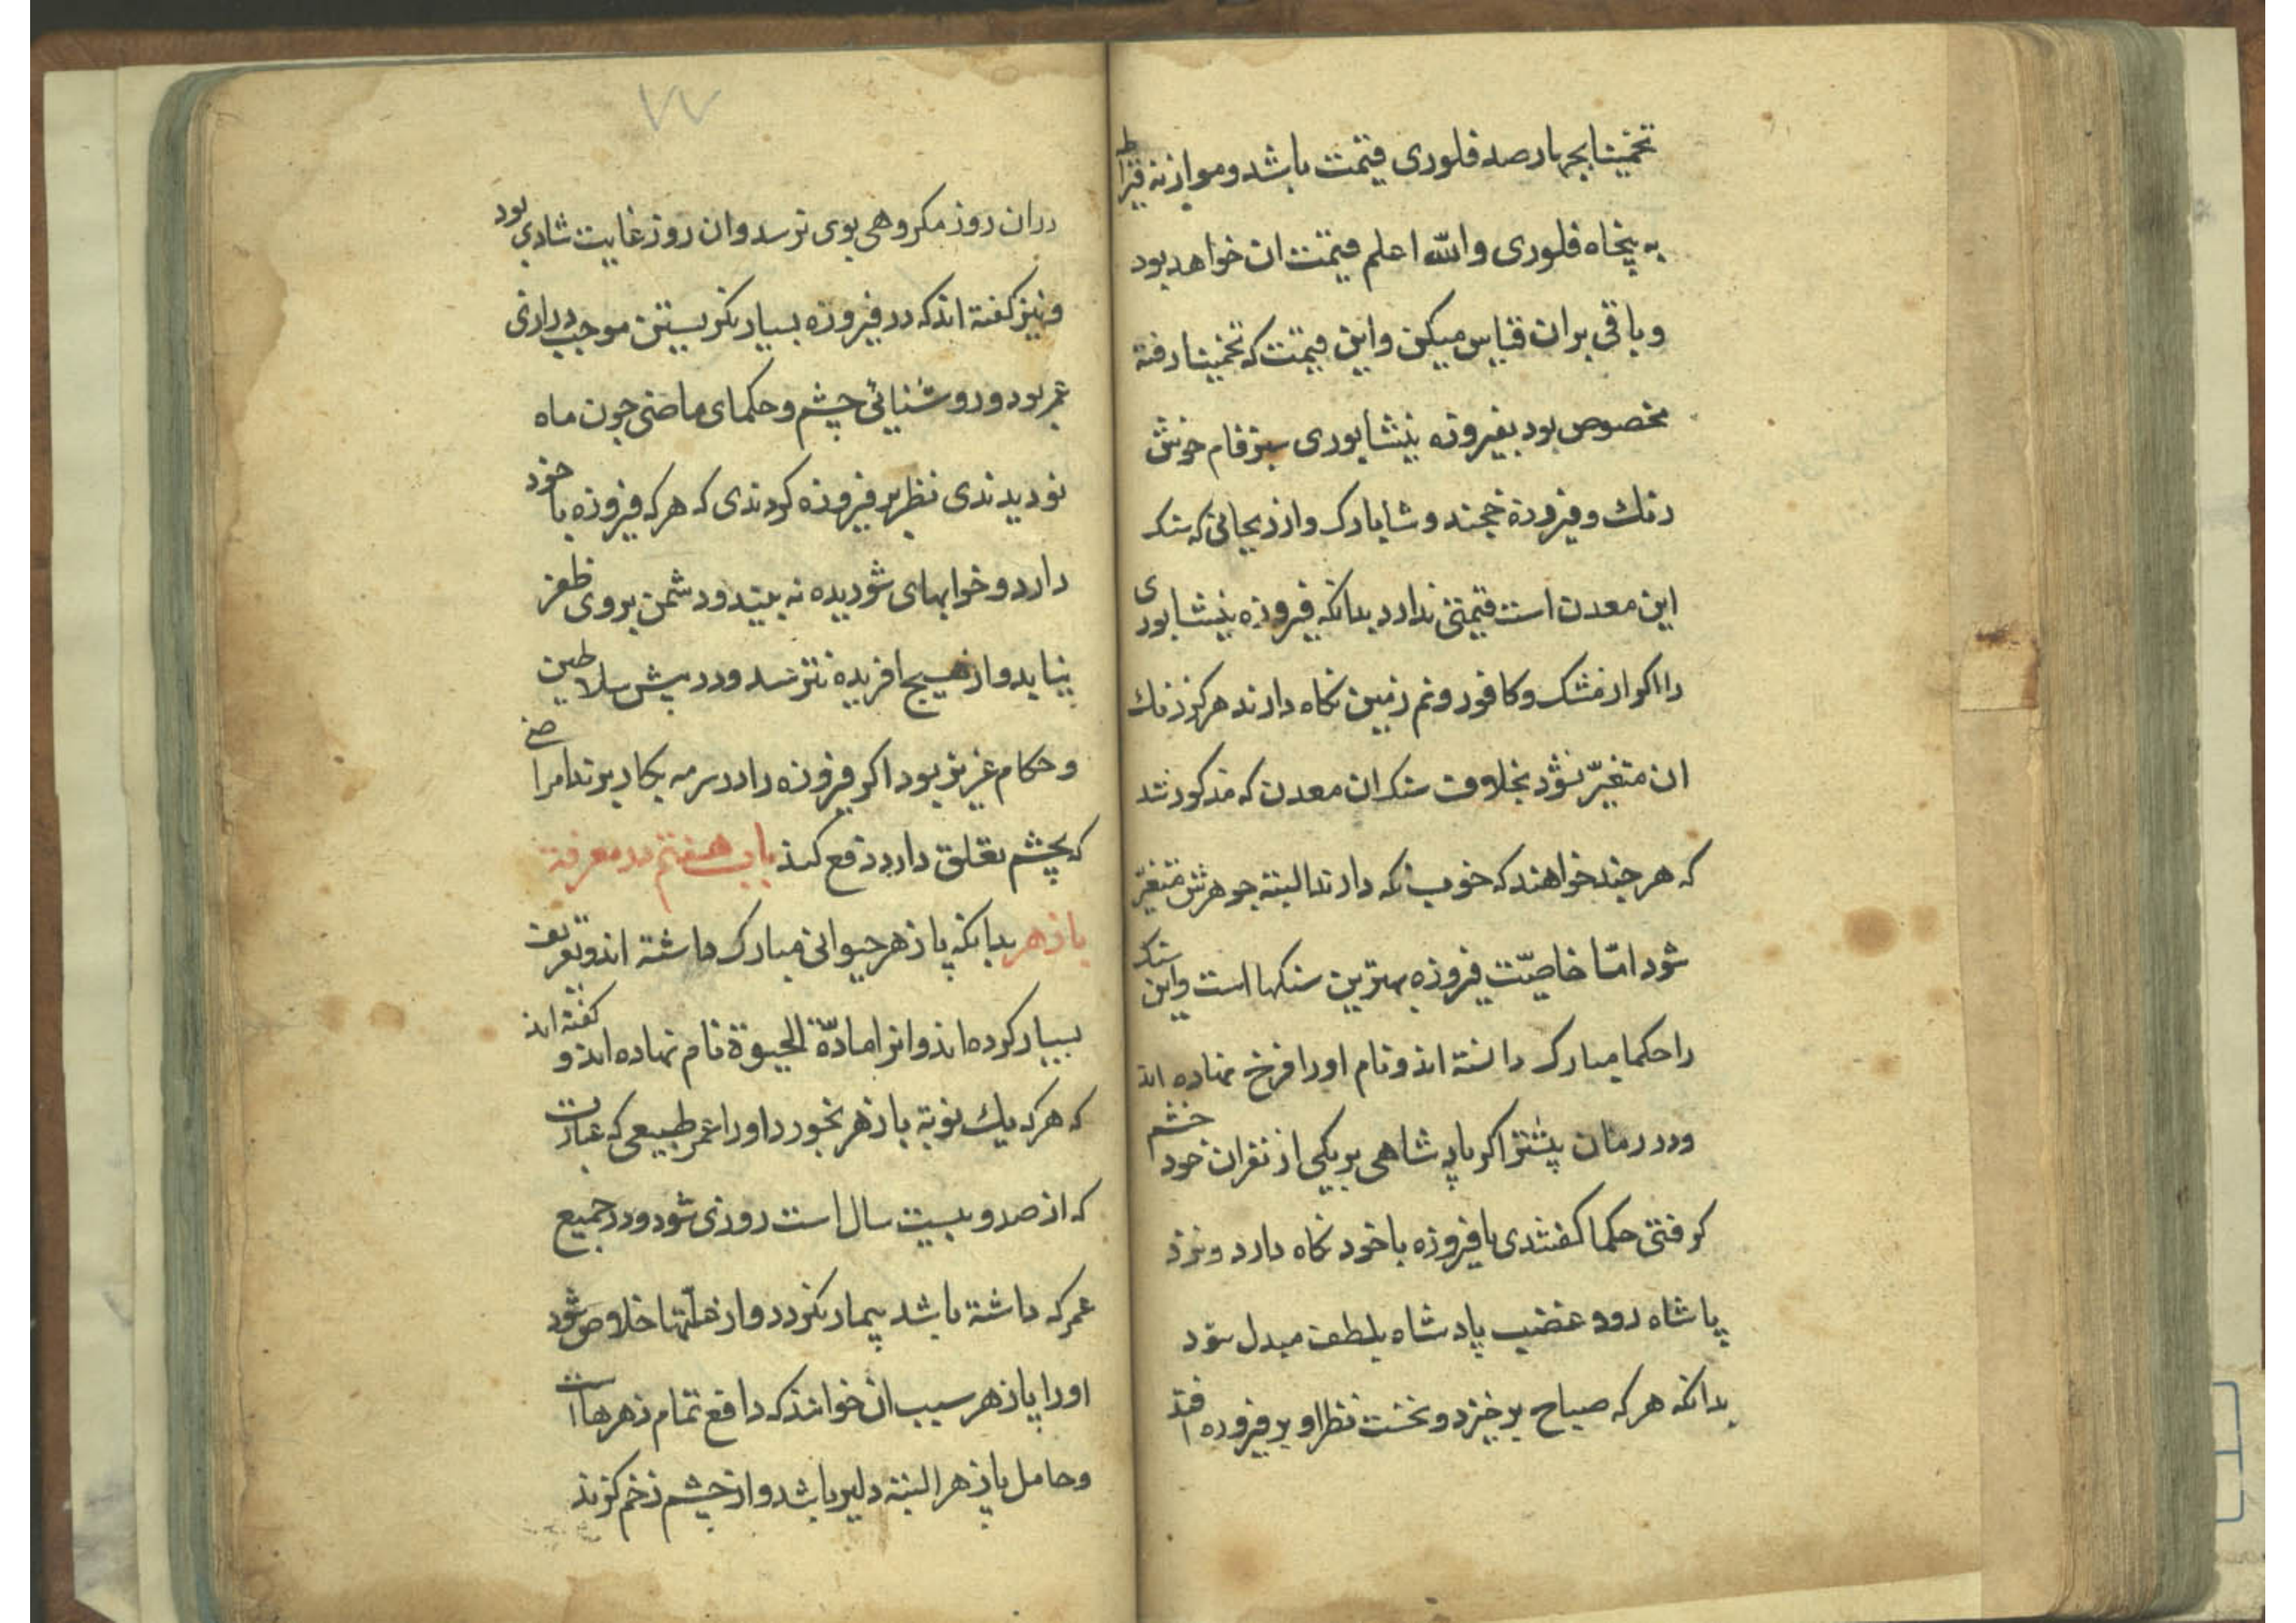 تخمینا بچهارصد فلوری قیمت باشد و موازنه قیراط
به پنجاه فلوری والله اعلم قیمت ان خواهد بود
و باقی بران قیاس میکن واین قیمت که تخمینا رفته
مخصوص بود بفیروزه نیشابوری سبزفام خوش
رنك و فیروزهٔ خجند و شابارک وازریجانی که سنک
این معدن است قیمتی ندارد بدانکه فیروزه نیشابوری
را اکر از مشک و کافور ونم زمین نکاه دارند هرکز رنك
ان متغیّر نشود بخلاف سنک ان معدن که مذکور شد
که هرچند خواهند که خوب نکه دارند البته جوهرش متغیّر
شود امّا خاصیّت فیروزه بهترین سنکها است واین سنک
را حکما مبارک دانسته اند ونام اورا فرخ نهاده اند
ودر زمان پیشتر اکر پادشاهی بر یکی از نفران خود خشم
کرفتی حکما کفتندی با فیروزه باخود نکاه دارد ونزد
پاشاه رود غضب پادشاه بلطف مبدل شود
بدانکه هرکه صباح برخیزد ونخست نظر او بر فیروزه افتد
۷۷
دران روز مکروهی بوی نرسد وان روز غایت شادی بود
ونیز کفته اند که در فیروزه بسیار نکریستن موجب درازی
عمر بود و روشنائی چشم و حکمای ماضی چون ماه
نو دیدندی نظر بر فیروزه کردندی که هرکه فیروزه باخود
دارد وخوابهای شوریده نه بیند ودشمن بروی ظفر
نیابد واز هیچ افریده نترسد ودر پیش سلاطین
وحکام عزیز بود اکر فیروزه را در سرمه بکار برند امراضی
که بچشم تعلق دارد دفع کند باب هفتم در معرفة
پازهر بدانکه پازهر حیوانی مبارک داشته اند وتعریف
بسیار کرده اند وانرا مادّة الحیوة نام نهاده اند و کفته اند
که هرکه یك نوبة پازهر بخورد اورا عمر طبیعی که عبارت
که از صد و بیست سال است روزی شود ودر جمیع
عمر که داشته باشد بیمار نکردد واز علّتها خلاص شود
اورا پازهر سبب ان خوانند که دافع تمام زهرها است
وحامل پازهر البته دلیر باشد واز چشم زخم کزند